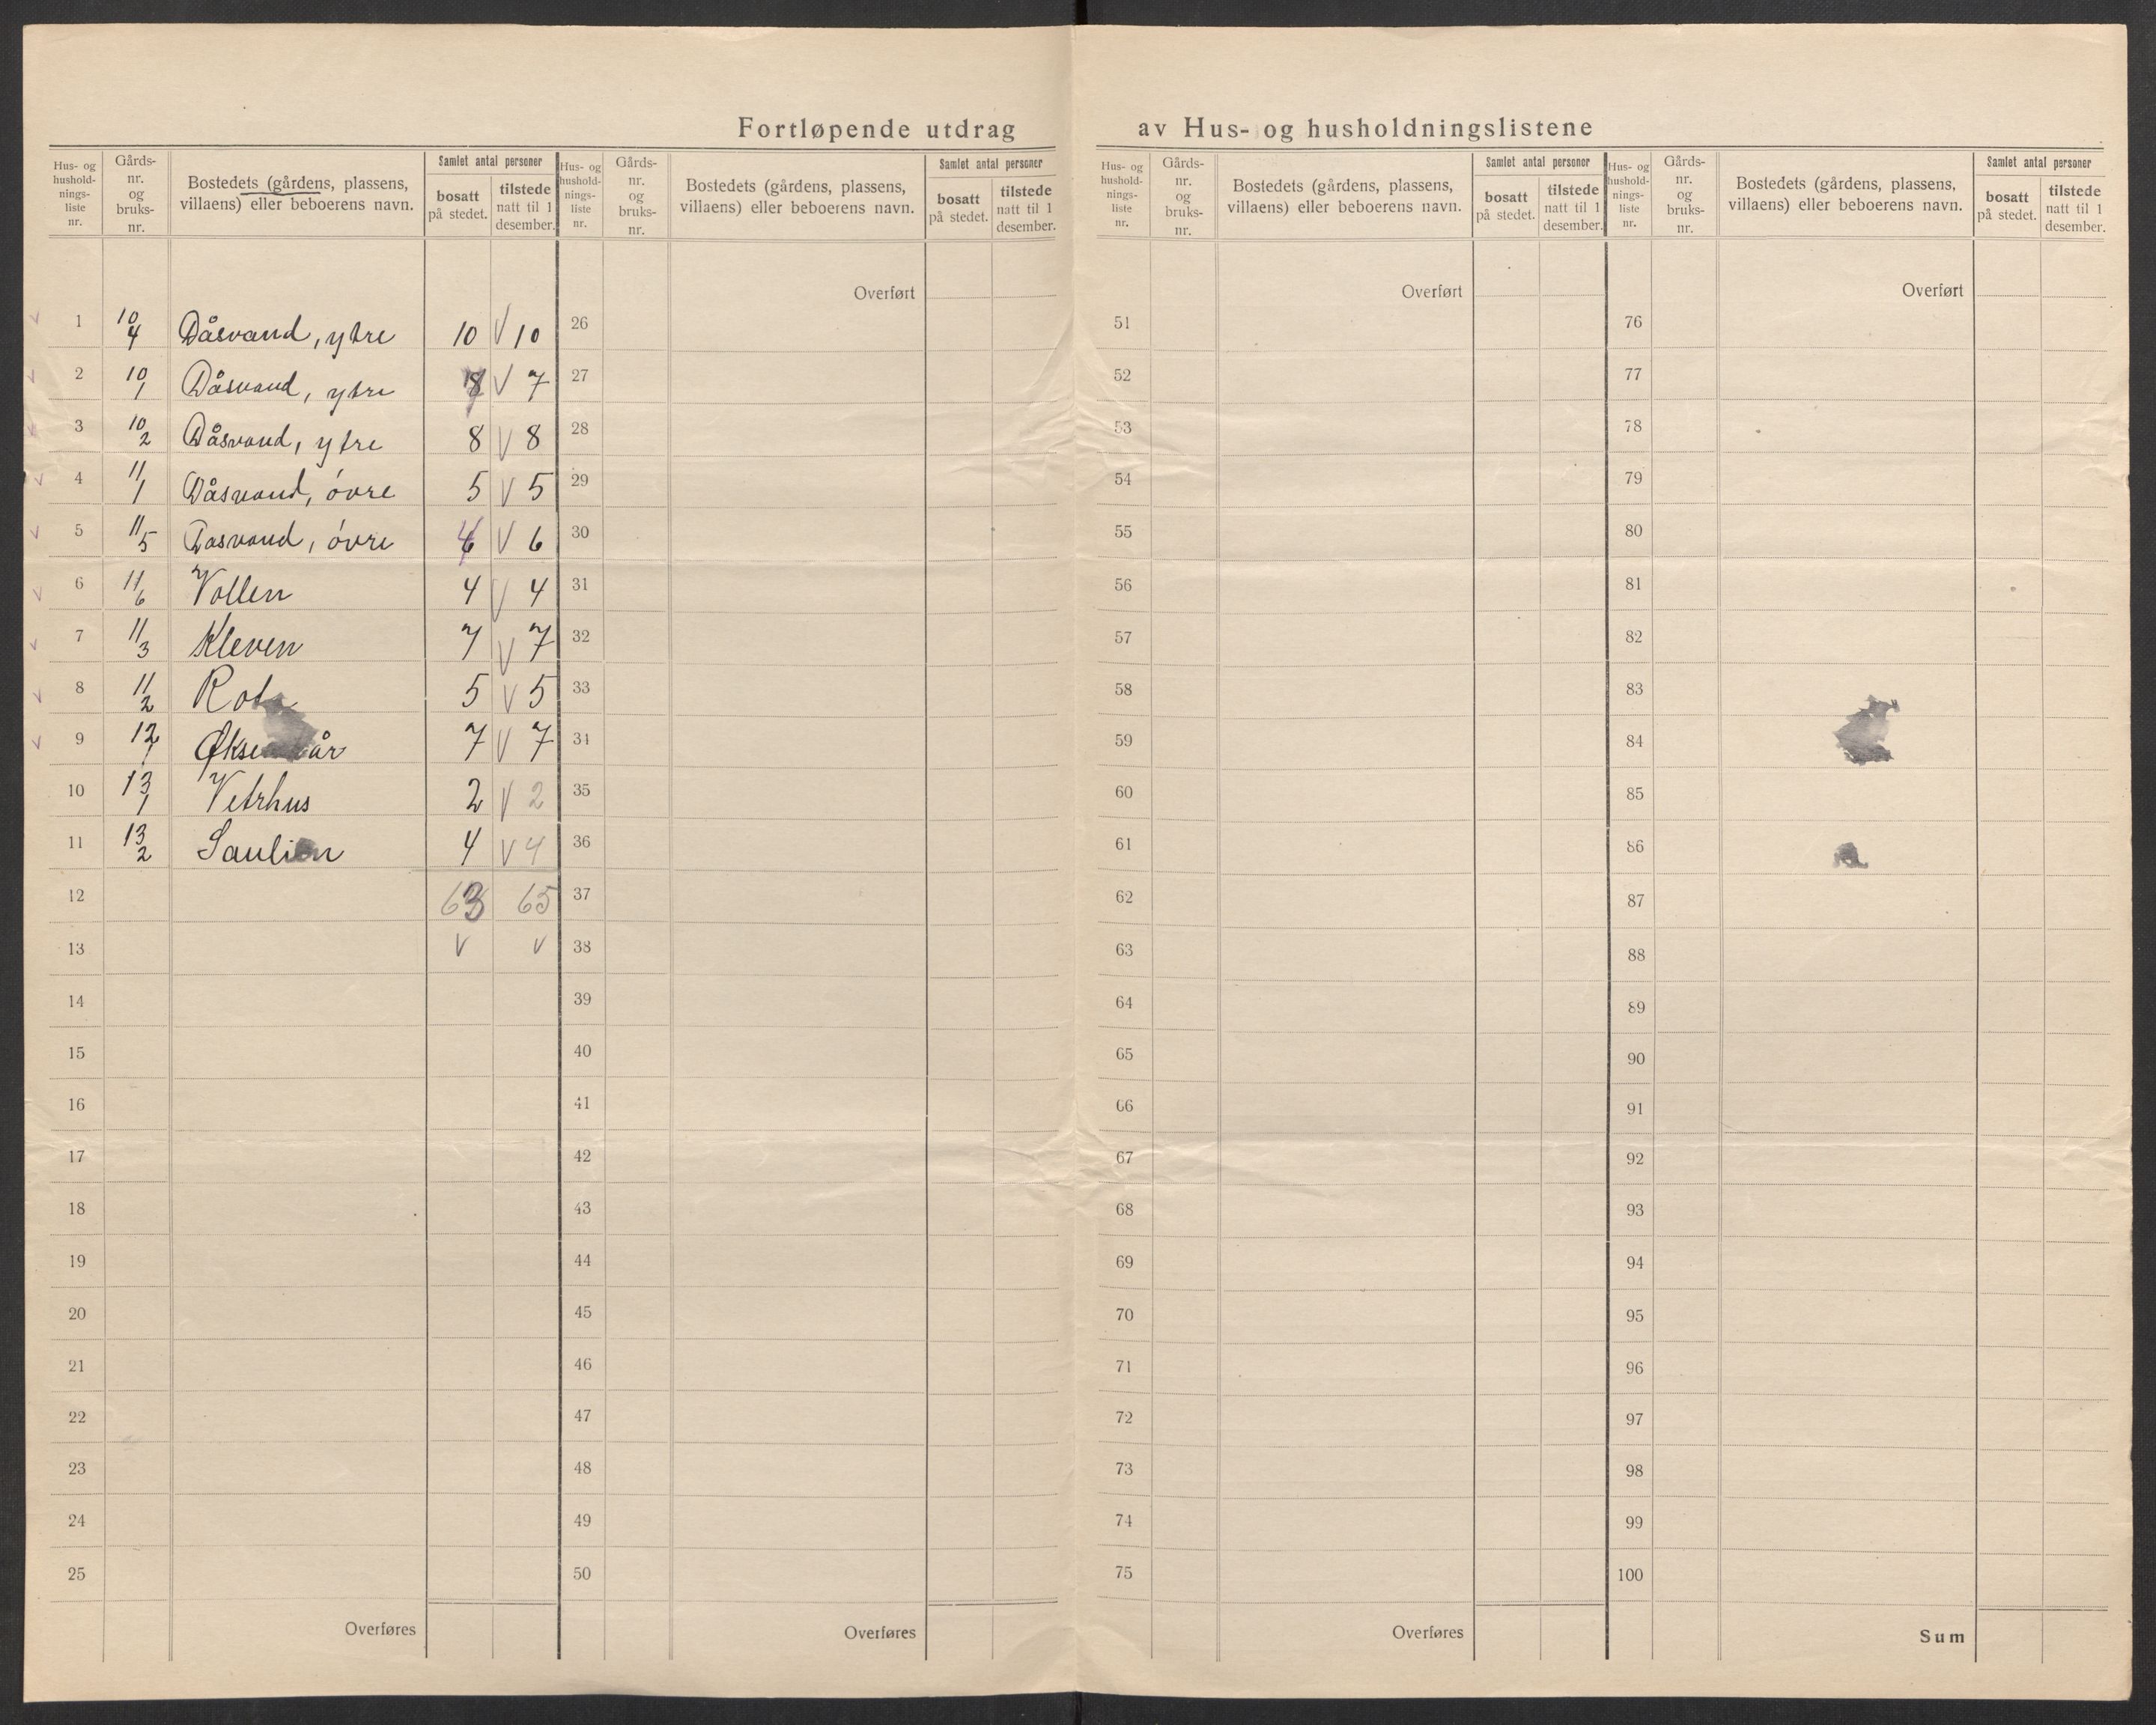 Fortløpende utdrag av Hus- og husholdningslistene
Hus- og husholdnings-liste nr. | Gårds-nr. og bruks-nr. | Bostedets (gårdens, plassens, villaens) eller beboerens navn. | Samlet antal personer | bosatt på stedet. | tilstede natt til 1 desember.
1 | 10/4 | Dåsvand, ytre | 10 | V 10
2 | 10/1 | Dåsvand, ytre | 8 | V 7
3 | 10/2 | Dåsvand, ytre | 8 | V 8
4 | 11/1 | Dåsvand, óvre | 5 | V 5
5 | 11/5 | Dasvand, óvre | 4 | V 6
6 | 11/6 | Vollen | 4 | V 4
7 | 11/3 | Kleven | 7 | V 7
8 | 11/2 | V 5 | 5
9 | 12/1 | 7 | V 7
10 | 13/1 | Vetrhus | 2 | V 2
11 | 13/2 | Saulien | 4 | V 4
12 | 63 | 65
13 | V | V
14
15
16
17
18
19
20
21
22
23
24
25
Overføres
Hus- og husholdnings-liste nr. | Gårds-nr. og bruks-nr. | Bostedets (gårdens, plassens, villaens) eller beboerens navn. | Samlet antal personer | bosatt på stedet. | tilstede natt til 1 desember.
Overført
26
27
28
29
30
31
32
33
31
35
36
37
38
39
40
41
42
43
44
45
46
47
48
49
50
Overføres
Hus- og husholdnings-liste nr. | Gårds-nr. og bruks-nr. | Bostedets (gårdens, plassens, villaens) eller beboerens navn. | Samlet antal personer | bosatt på stedet. | tilstede natt til 1 desember.
Overført
51
52
53
54
55
56
57
58
59
60
61
62
63
64
65
66
67
68
69
70
71
72
73
74
75
Overføres
Hus- og husholdnings-liste nr. | Gårds-nr. og bruks-nr. | Bostedets (gårdens, plassens, villaens) eller beboerens navn. | Samlet antal personer | bosatt på stedet. | tilstede natt til 1 desember.
Overført
76
77
78
79
80
81
82
83
84
85
86
87
88
89
90
91
92
93
94
95
96
97
98
99
100
Sum